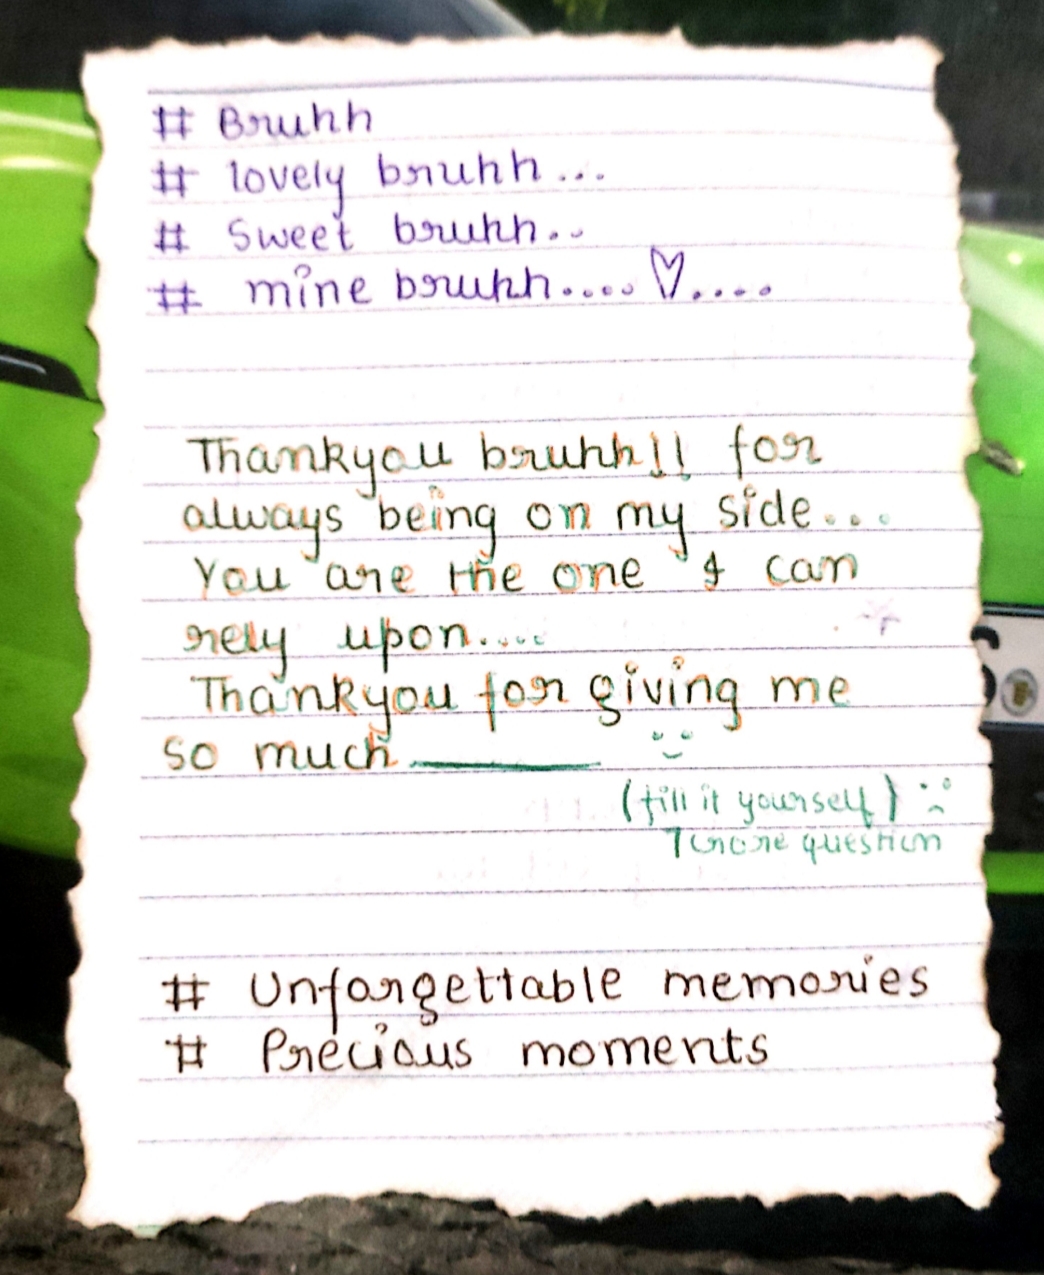 # Bruhh
# lovely bruhh...
# Sweet bruhh...
# mine bruhh.... ♡....
Thankyou bruhh!! for
always being on my side...
You are the one I can
rely upon.....
Thankyou for giving me
so much ______
(fill it yourself)
question
# Unforgettable memories
# Precious moments